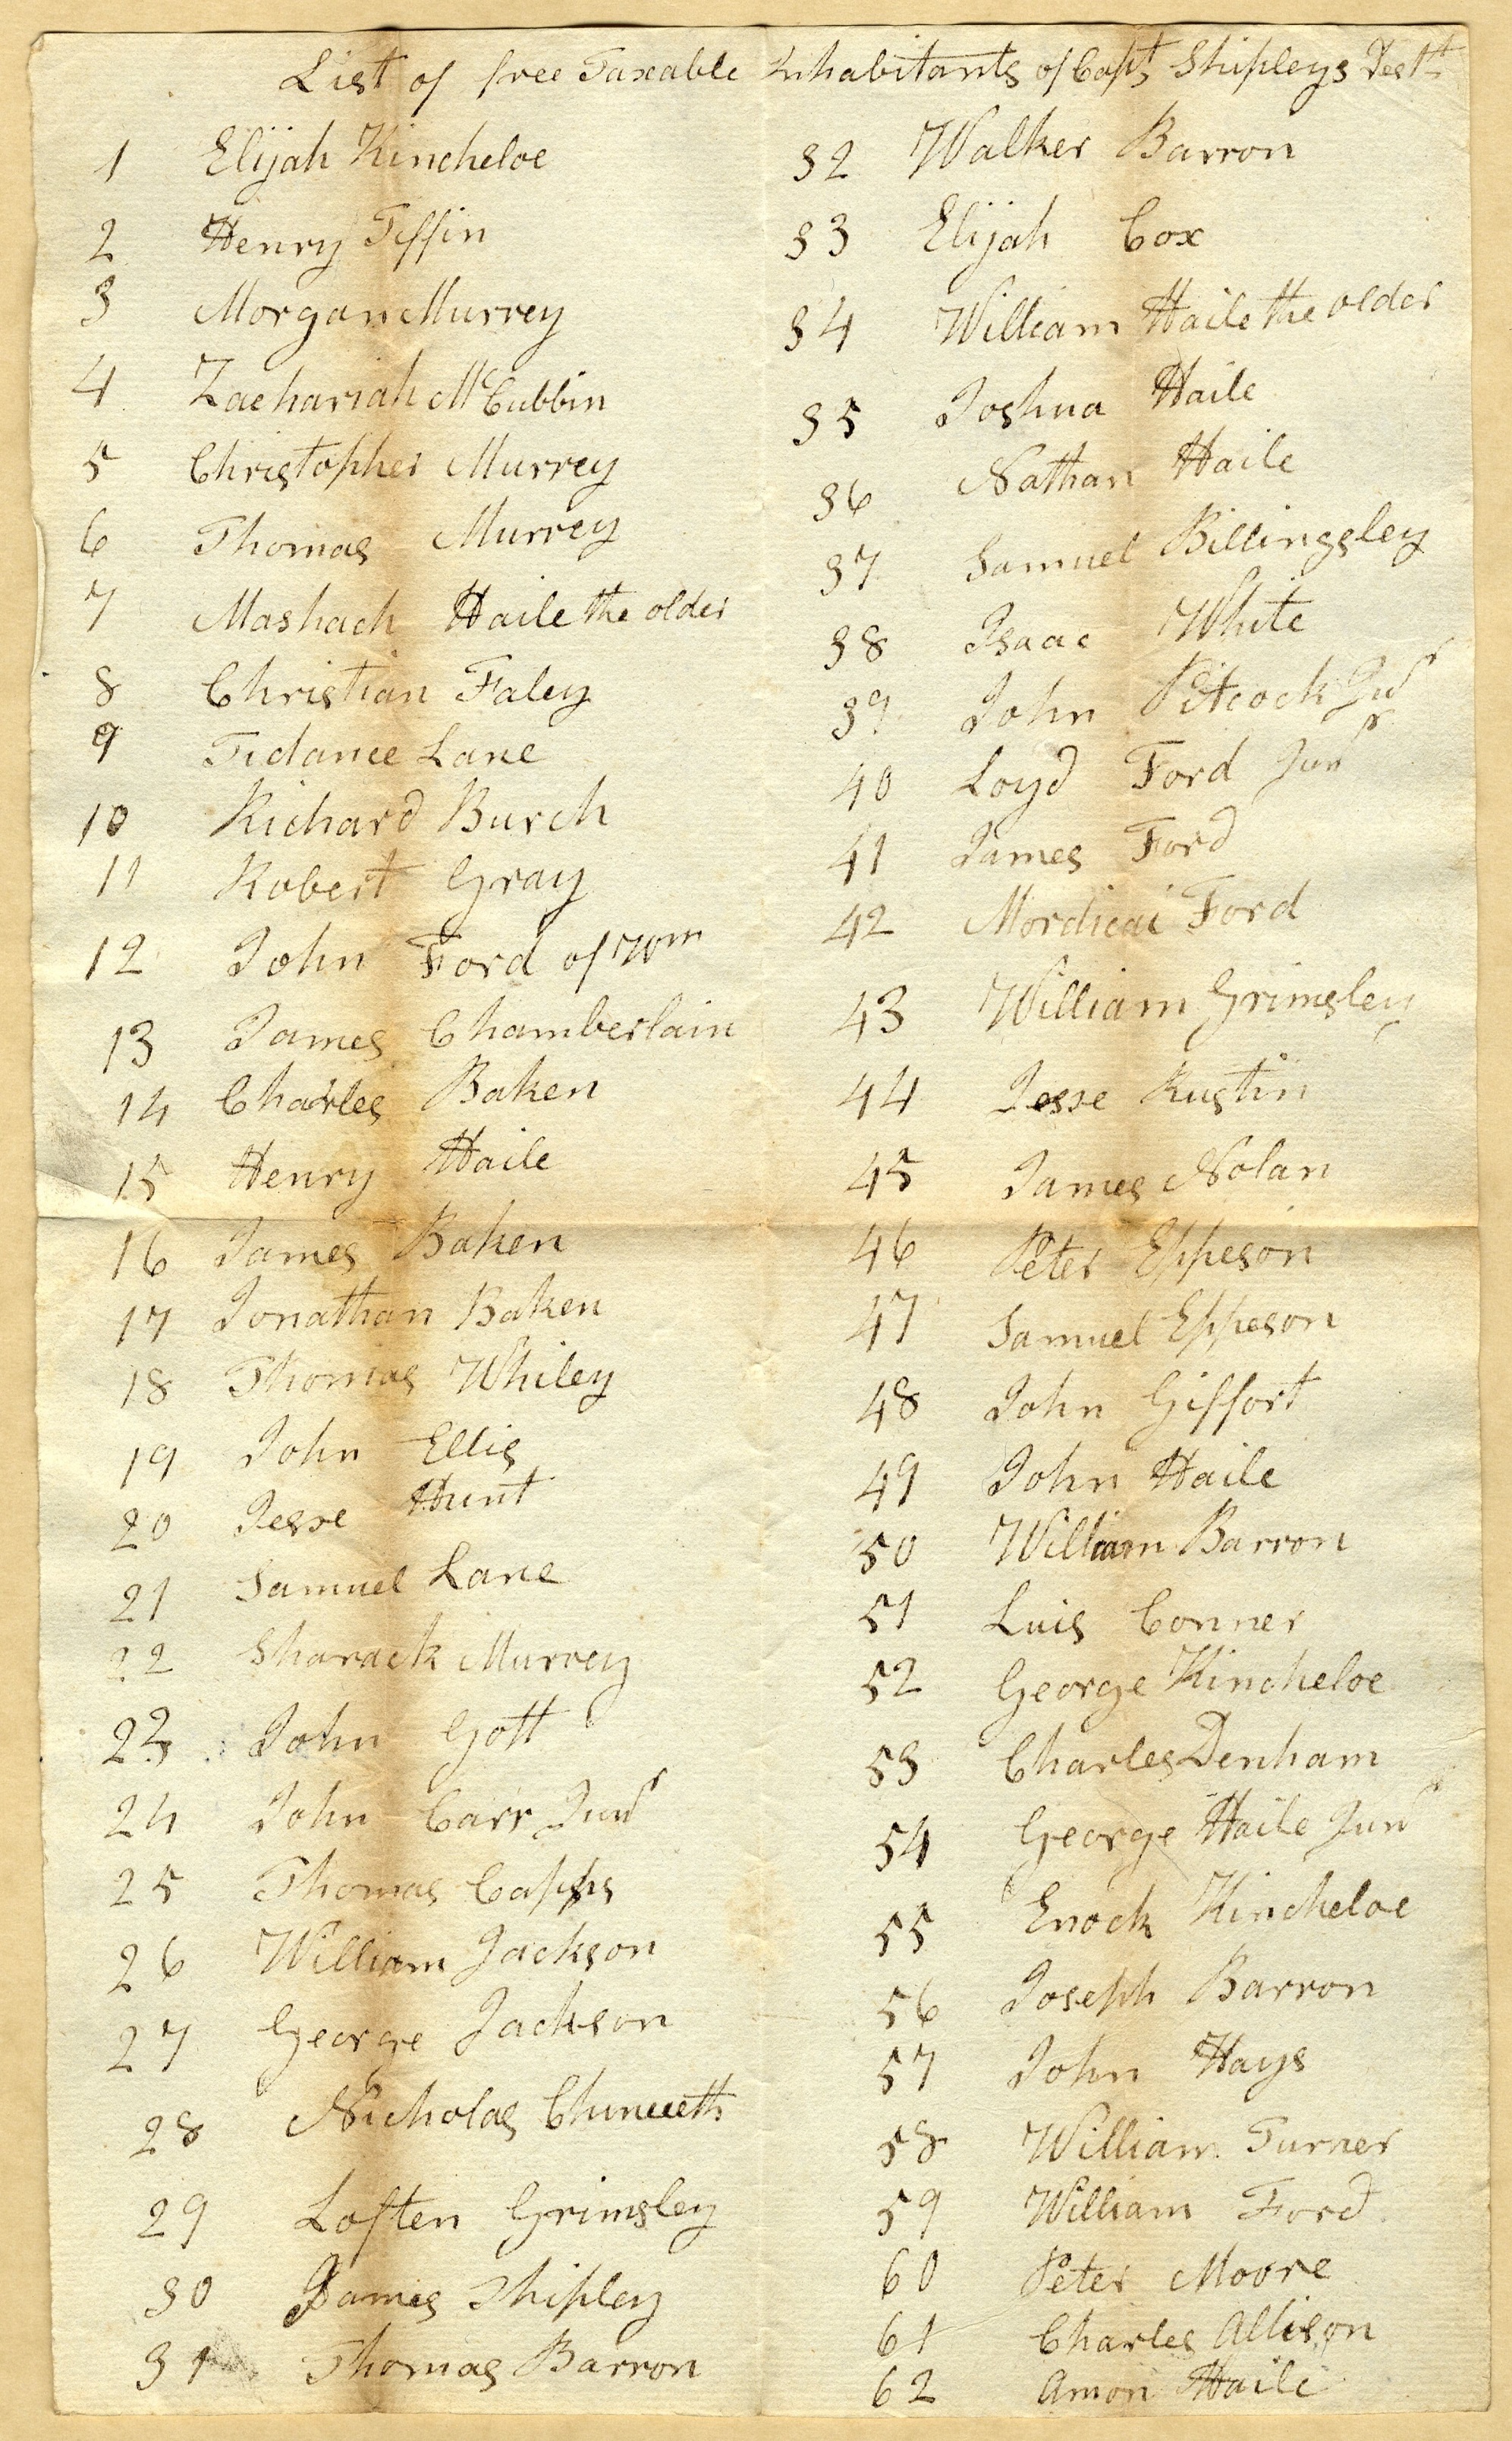 List of free Taxable Inhabitants of Capt Shipleys Destt
1 Elijah Kincheloe
2 Henry Tiffin
3 Morgan Murrey
4 Zachariah McCubbin
5 Christopher Murrey
6 Thomas Murrey
7 Mashach Haile the older
8 Christian Faley
9 Tidance Lane
10 Richard Burch
11 Robert Gray
12 John Ford of Wm
13 James Chamberlain
14 Charles Baken
15 Henry Haile
16 James Baken
17 Jonathan Baken
18 Thomas Whiley
19 John Ellis
20 Jesse Hunt
21 Samuel Lane
22 Sharack Murrey
23 John Gott
24 John Carr Junr
25 Thomas Capps
26 William Jackson
27 George Jackson
28 Nicholas Chinweth
29 Loften Grimsley
30 James Shipley
31 Thomas Barron
32 Walker Barron
33 Elijah Cox
34 William Haile the older
35 Joshua Haile
36 Nathan Haile
37 Samuel Billingsley
38 Isaac White
39 John Pitcock Jur
40 Loyd Ford Junr
41 James Ford
42 Mordicai Ford
43 William Grimsley
44 Jesse Rustin
45 James Nolan
46 Peter Eppeson
47 Samuel Eppeson
48 John Giffort
49 John Haile
50 William Barron
51 Luis Conner
52 George Kincheloe
53 Charles Denham
54 George Haile Junr
55 Enock Kincheloe
56 Joseph Barron
57 John Hays
58 William Turner
59 William Ford
60 Peter Moore
61 Charles Allison
62 Amon Haile